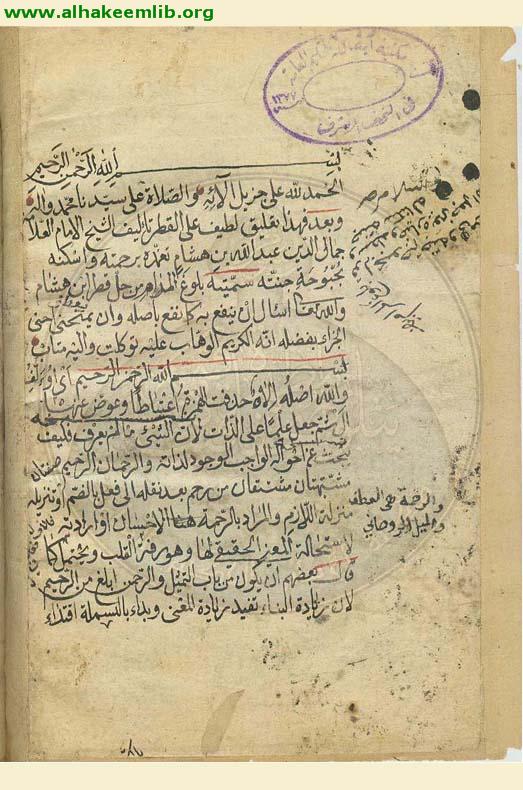 www.alhakeemlib.org
مكتبة آية الله الحكيم العامة
١٣٧٧
في النجف الاشرف
بسم الله الرحمن الرحيم
الحمد لله على جزيل الآئه والصلاة على سيدنا محمد واله
وبعد فهذا تعليق لطيف على القطر تاليف الشيخ الامام العلا
جمال الدين عبدالله بن هشام تغمده برحمته واسكنه
بحبوحة جنته سميته بلوغ المرام من حل قطر ابن هشام
والله تعالى اسأل ان ينفع به كما نفع باصله وان يمنحني احسن
الجزاء بفضله انه الكريم الوهاب عليه توكلت واليه متاب
بسم الله الرحمن الرحيم اي اؤلف
والله اصله الاه حذفت الهمزة اعتباطا وعوض عنها
ال ثم جعل علما على الذات لان الشئ ما لم يعرف فكيف
يبحث عن احواله الواجب الوجود لذاته والرحمان الرحيم صفتان
مشبهتان مشتقان من رحم بعد نقله الى فعل بالضم او تنزيله
منزلة اللازم والمراد بالرحمة هنا الاحسان او ارادته
لاستحالة المعنى الحقيقي لها وهو رقة القلب ويحتمل كما
قال بعضهم ان يكون من باب التمثيل والرحمن ابلغ من الرحيم
لان زيادة البناء تفيد زيادة المعنى وبداء بالبسملة اقتداء
والرحمة هي العطف
والميل الروحاني